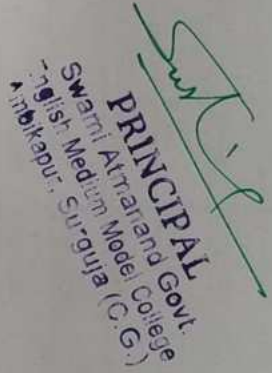 PRINCIPAL
Swami Atmanand Govt.
English Medium Model College
Ambikapur, Surguja (C.G.)